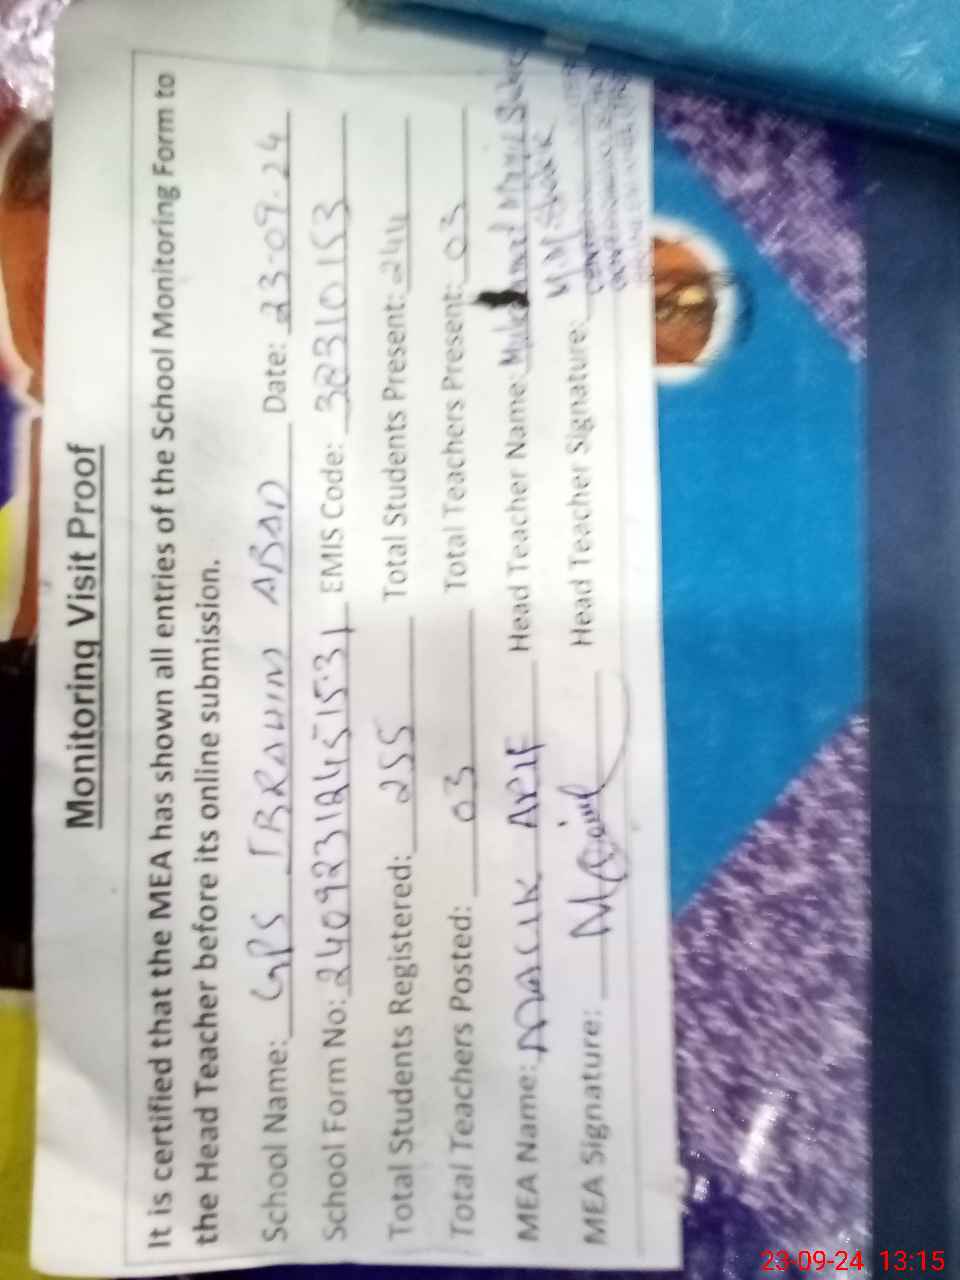 Monitoring Visit Proof
It is certified that the MEA has shown all entries of the School Monitoring Form to
the Head Teacher before its online submission.
School Name: GPS IBRAHIM ABAD Date: 23-09-24
School Form No: EMIS Code: 38310153
Total Students Registered: 255 Total Students Present: 244
Total Teachers Posted: 03 Total Teachers Present: 03
MEA Name: MALIK ARIF Head Teacher Name:
MEA Signature: Head Teacher Signature:
23-09-24 13:15